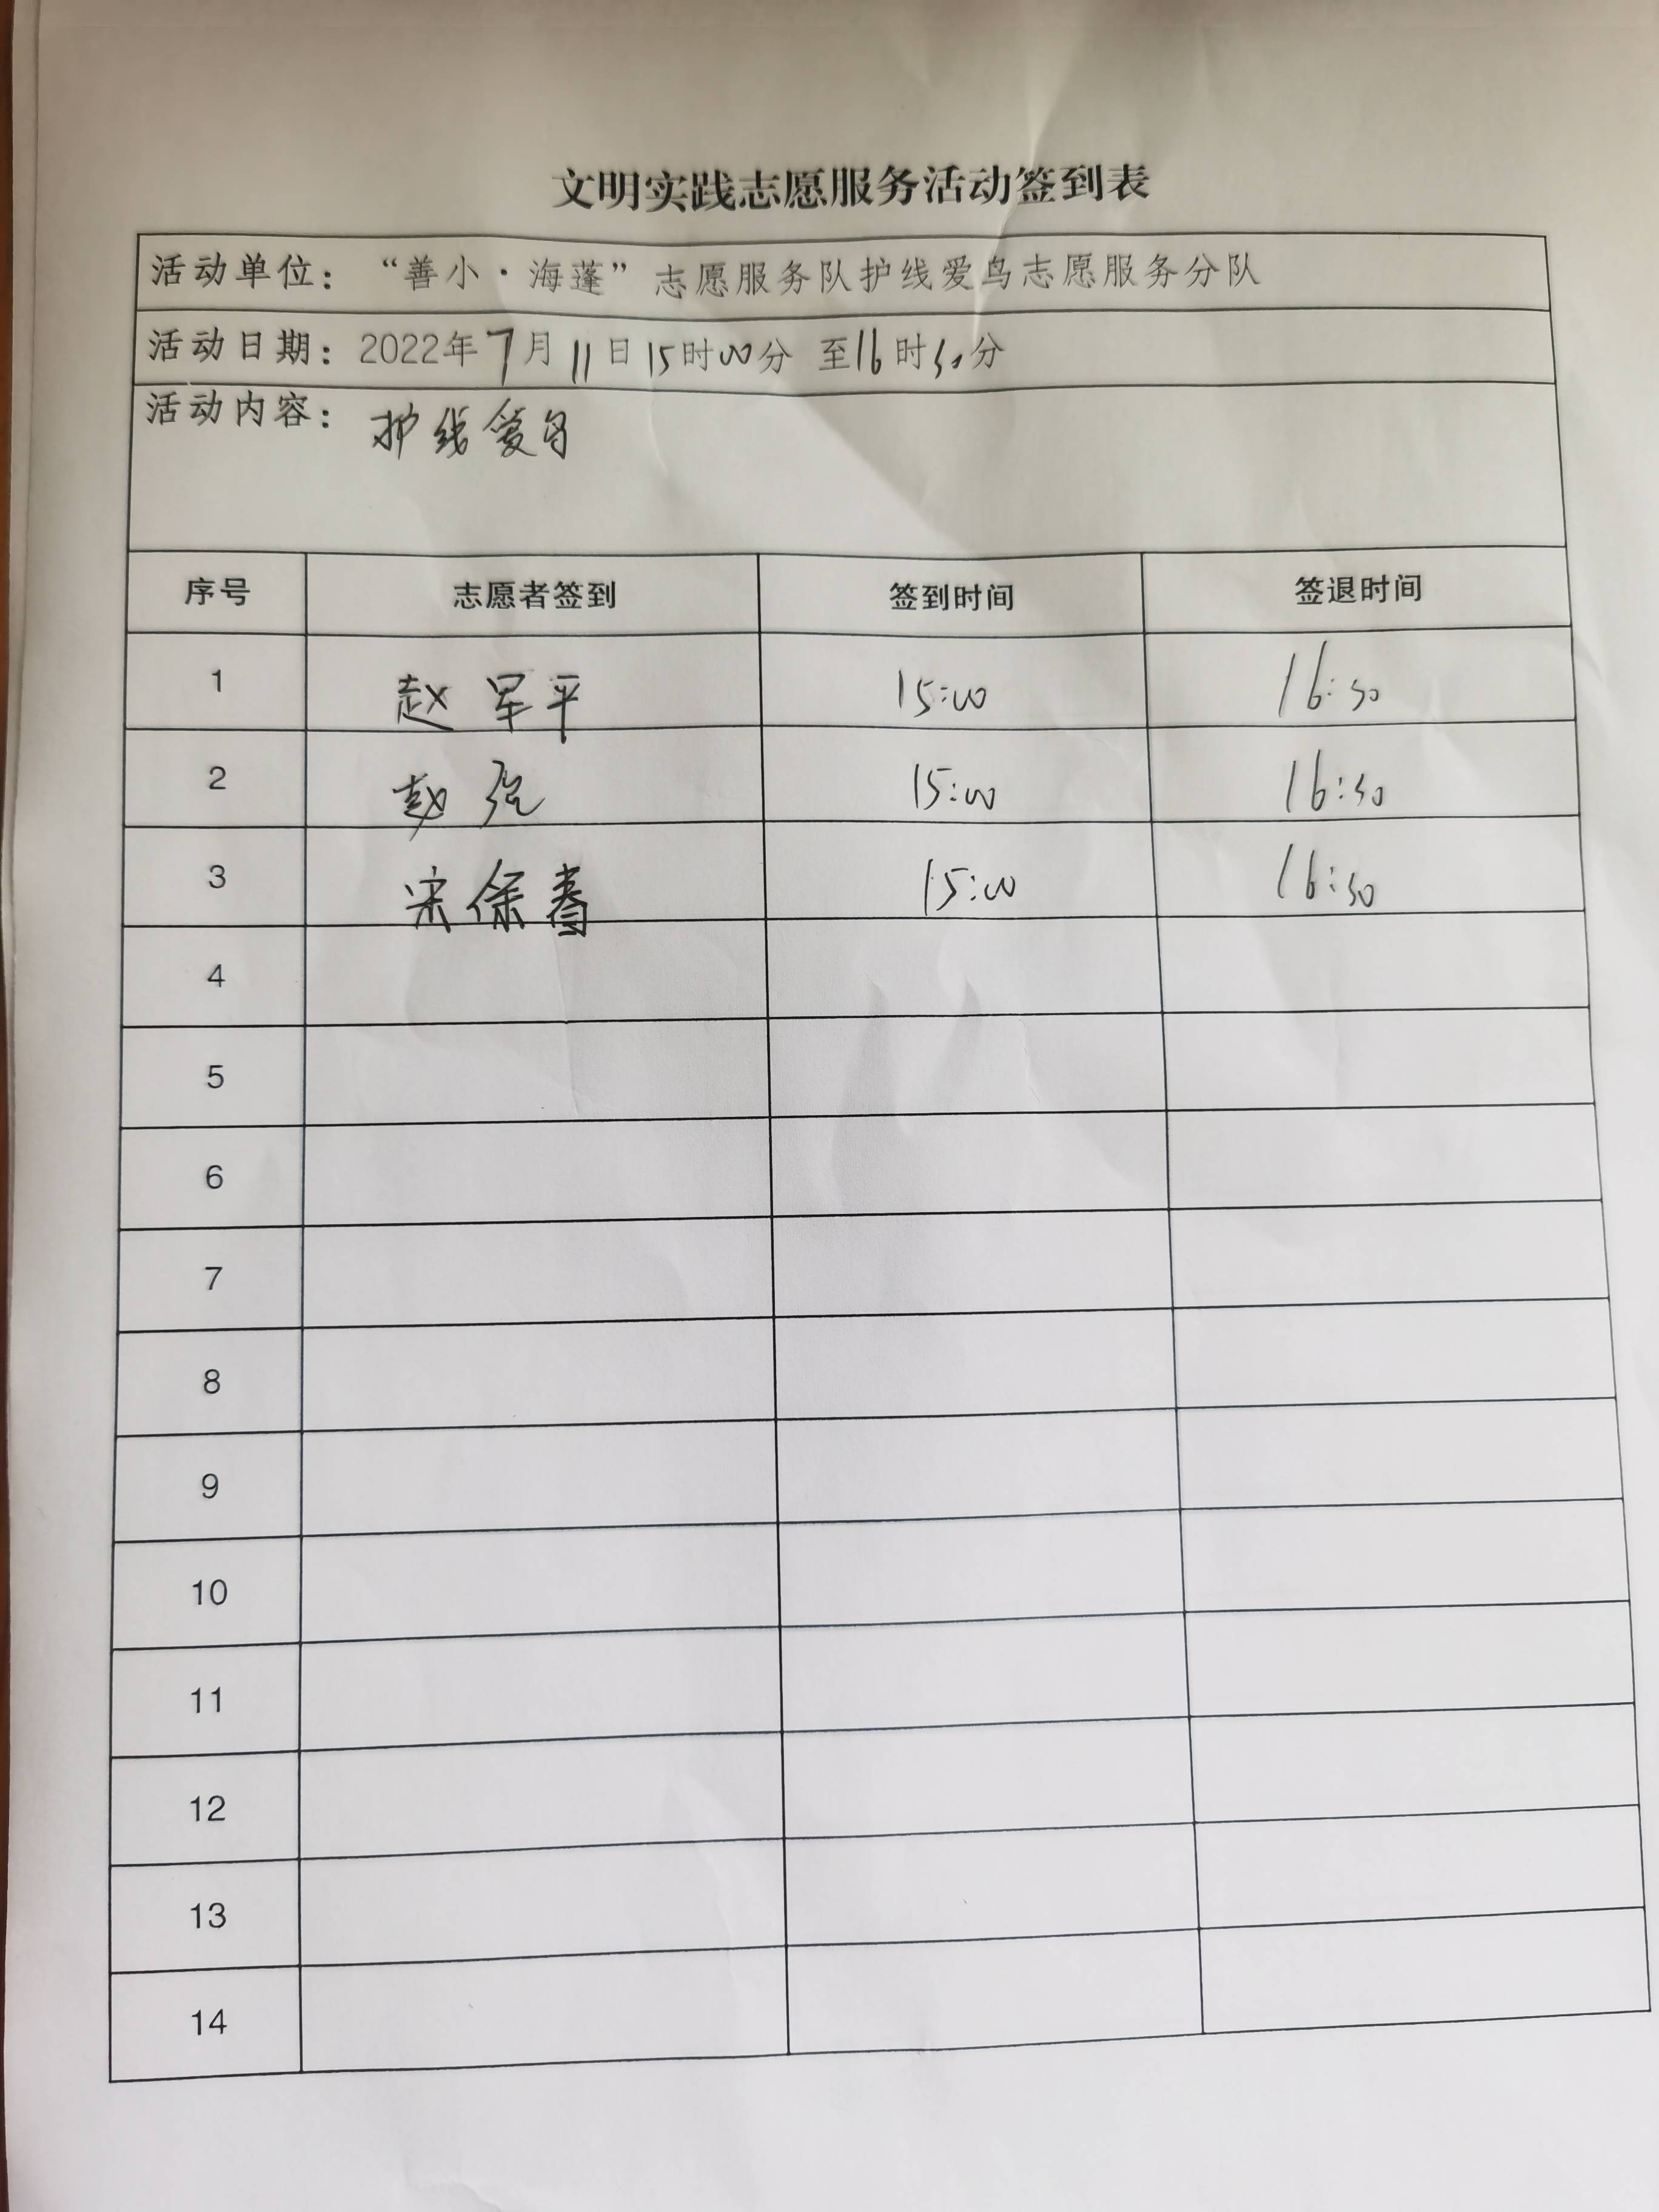 文明实践志愿服务活动签到表
活动单位：“善小·海蓬”志愿服务队护线爱鸟志愿服务分队
活动日期：2022年7月11日15时00分 至16时30分
活动内容：护线爱鸟
序号 志愿者签到 签到时间 签退时间
1 赵军平 15:00 16:30
2 赵 15:00 16:30
3 宋保春 15:00 16:30
4
5
6
7
8
9
10
11
12
13
14